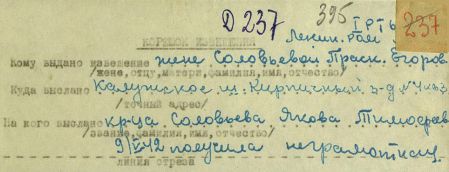 Д 237 395 237
Ленин. рай
КОРЕШОК ИЗВЕЩЕНИЯ
Кому выдано извещение жене Соловьевой Праск. Егоров
/жене, отцу, матери, фамилия, имя, отчество/
Куда выслано Калужское ш. Кирпичный з-д
/точный адрес/
На кого выслано кр-ца Соловьева Якова Тимофеев
/звание, фамилия, имя, отчество/
получила неграмотная
линия отреза